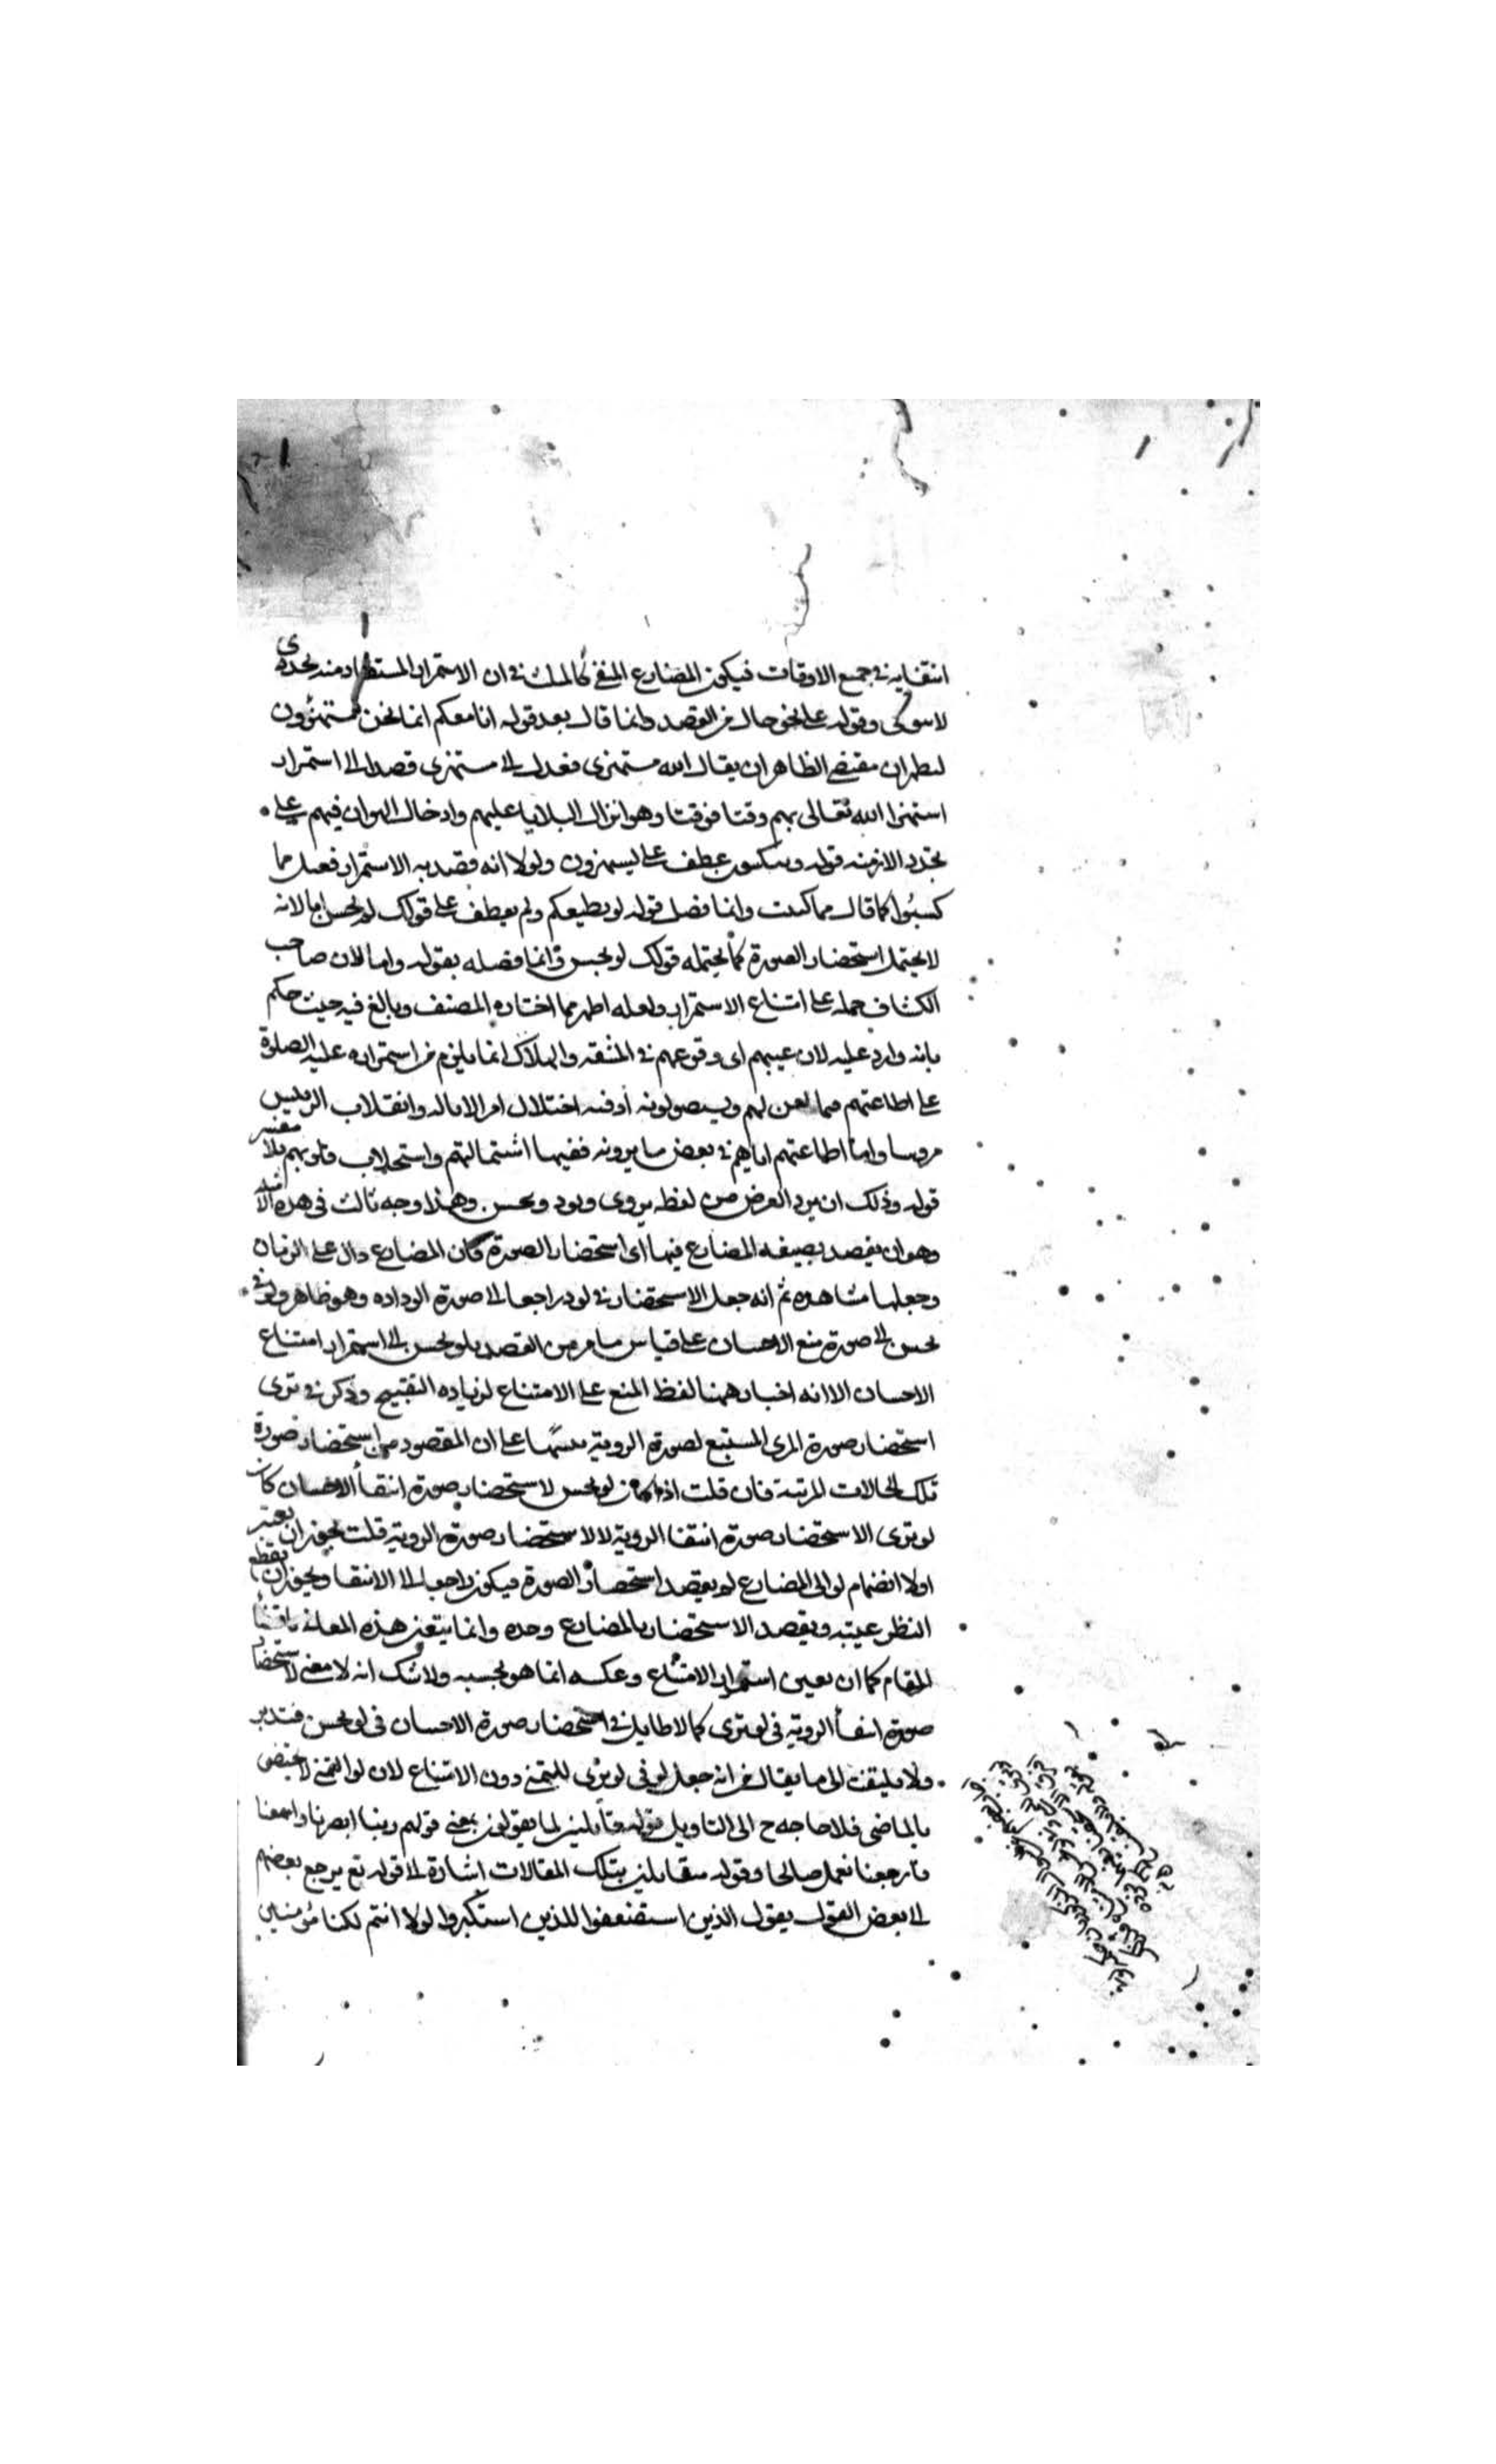 انتفايه فى جميع الاوقات فيكون المضارع المنفى كالمثبت فى ان الاستمرار المستفاد منه تجددى
لا ثبوتى وقوله على نحو حال من القصد وانما قال بعد قوله انا معكم انما نحن مستهزؤون
ليظهر ان مقتضى الظاهر ان يقال الله مستهزى فعدل الى يستهزى قصدا الى استمرار
استهزا الله تعالى بهم وقتا فوقتا وهو انزال البلايا عليهم وادخال الهوان فيهم على
تجدد الازمنه قوله ويكسبون عطف على يستهزون ولولا انه قصد به الاستمرار فعيل مما
كسبوا كما قال مما كتبت وانما فصل قوله لو يطيعكم ولم يعطف على قولك لو يحسن اما لانه
لا يحتمل استحضار الصورة كما يحتمله قولك لو يحسن وانما فصله بقوله واما لان صاحب
الكشاف حمله على امتناع الاستمرار ولعله اظهر مما اختاره المصنف وبالغ فيه حيث حكم
بانه وارد عليه لان عنتهم اى وقوعهم فى المشقه والهلاك انما يلزم من استمراره عليه الصلوة
على اطاعتهم فيما يعن لهم ويستصوبونه اذ فيه اختلال امر الاياله وانقلاب الرئيس
مروسا واما اطاعتهم اياهم فى بعض ما يرونه ففيها استمالتهم واستجلاب قلوبهم بلا مضرة
قوله وذلك ان يرد الغرض من لفظ يروى ويود ويحسن وهذا وجه ثالث فى هذه الامثله
وهو ان يقصد بصيغه المضارع فيها اى استحضار الصورة كان المضارع دال على الزمان
وجعلها مشاهده ثم انه جعل الاستحضار فى لو يود راجعا الى صورة الوداده وهو ظاهر وفى لو
يحسن الى صورة منع الاحسان على قياس ما مر من القصد بلو يحسن الى استمرار امتناع
الاحسان الا انه اختار ههنا لفظ المنع على الامتناع لزياده التقبيح وذكر فى ترى
استحضار صورة المرى المستتبع لصورة الروية تنبيها على ان المقصود من استحضار صورة
تلك الحالات المرتبة فان قلت اذا كان لو يحسن لاستحضار صورة انتفا الاحسان كان
لو ترى الاستحضار صورة انتفا الروية لا لاستحضار صورة الروية قلت يجوز ان يعتبر
اولا انضمام لو الى المضارع ثم يقصد استحضار الصورة فيكون راجعا الى الانتفا ويجوز ان يقطع
النظر عنه ويقصد الاستحضار بالمضارع وحده وانما يتعين هذه المعانى باقتضا
المقام كما ان تعيين استمرار الامتناع وعكسه انما هو بحسبه ولا شك انه لا معنى لاستحضار
صورة انتفا الروية فى لو ترى كما لا طايل فى استحضار صورة الاحسان فى لو يحسن فتدبر
ولا يلتفت الى ما يقال من انه جعل لو فى لو ترى للتمنى دون الامتناع لان لو التمنى لا يختص
بالماضى فلا حاجه ح الى التاويل قوله قائلين لما يقولون بمعنى قولهم ربنا ابصرنا وسمعنا
فارجعنا نعمل صالحا وقوله متقابلين بتلك المقالات اشارة الى قوله تع يرجع بعضهم
الى بعض القول يقول الذين استضعفوا للذين استكبروا لولا انتم لكنا مؤمنين